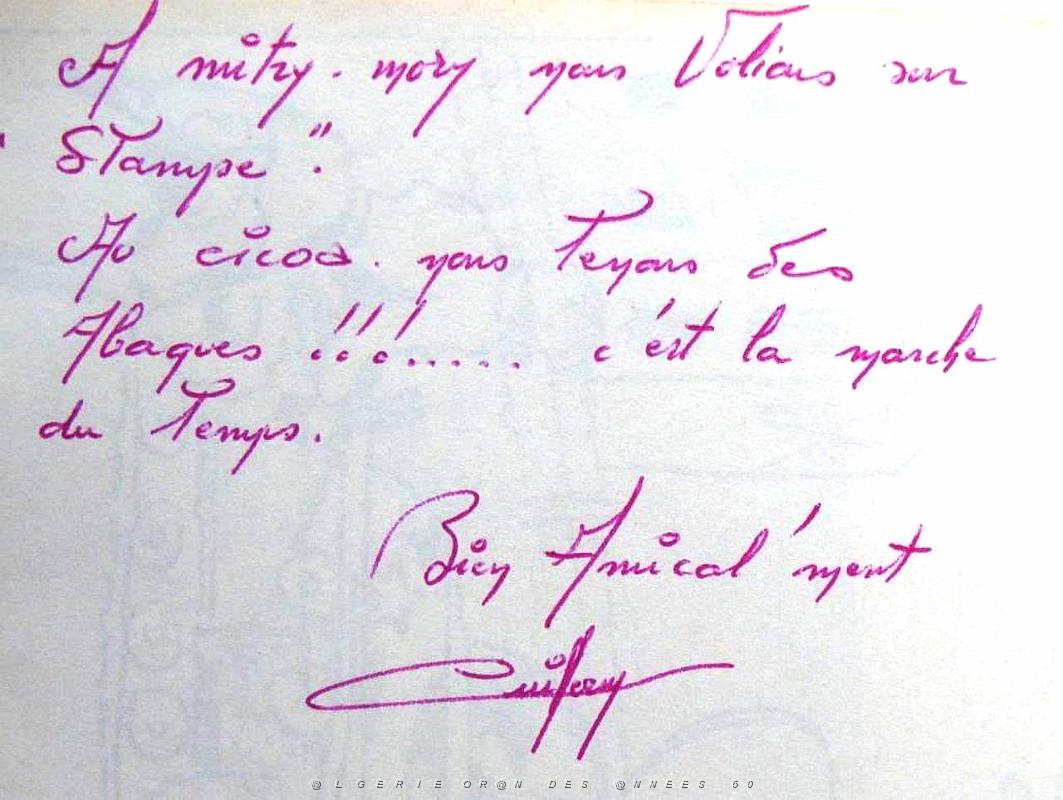 A mitry. mory nous Volions sur
" Stampe".
Au cicoa. nous Tenons des
Abaques !!!..... c'est la marche
du Temps.
Bien Amical'ment
@LGERIE OR@N DES @NNEES 50